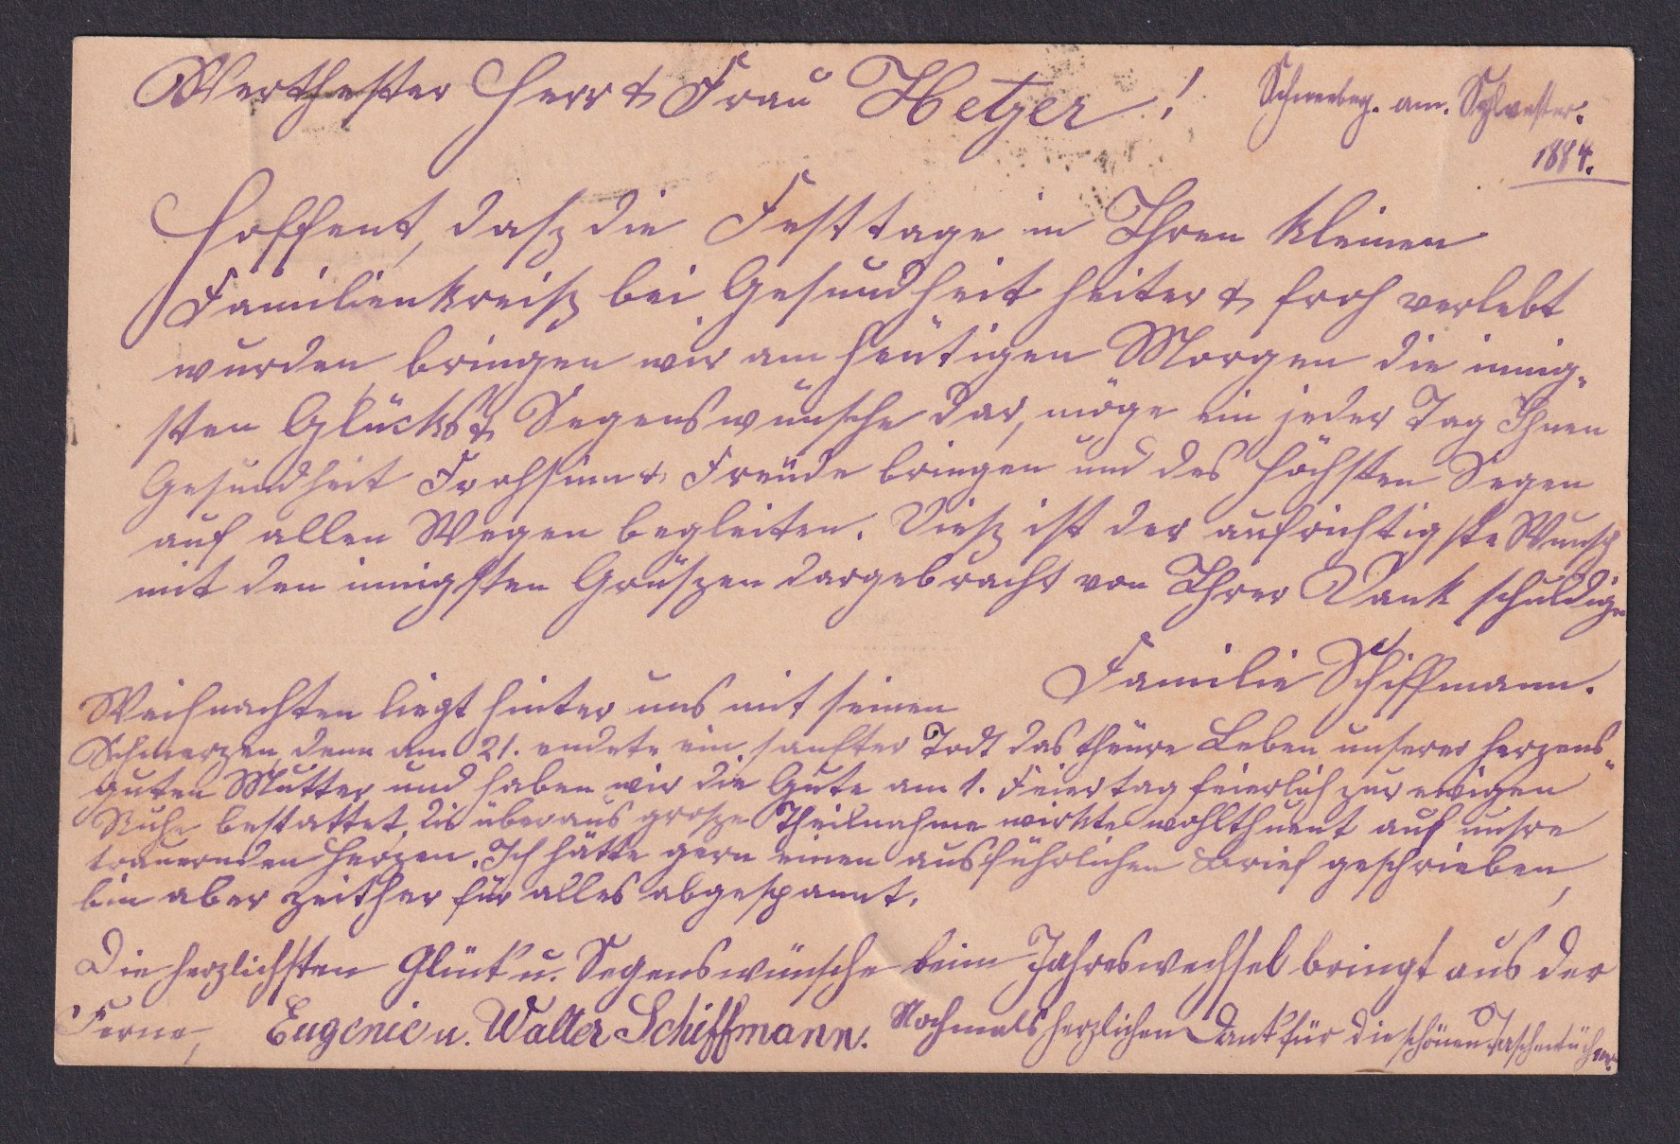 Werthester Herr & Frau Hetzer!
Schneeberg. am. Sylvester.
1884.
Hoffent, dasz die Festtage in Ihren kleinen
Familienkreisz bei Gesundheit heiter & froh verlebt
wurden, bringen wir am heutigen Morgen die innig-
sten Glücks & Segenswünsche dar, möge ein jeder Tag Ihnen
Gesundheit Frohsinn & Freude bringen und des höchsten Segen
auf allen Wegen begleiten. Diesz ist der aufrichtigste Wunsch
mit den innigsten Grüszen dargebracht von Ihrer Dank schuldigen
Familie Schiffmann.
Weihnachten liegt hinter uns mit seinen
Schmerzen, denn am 21. endete ein sanfter Todt das theure Leben unserer herzens-
guten Mutter und haben wir die Gute am 1. Feiertag feierlich zur ewigen
Ruhe bestattet, die überaus grosze Theilnahme wirkte wohlthuent auf unsre
trauernden Herzen. Ich hätte gern einen ausführlichen Brief geschrieben,
bin aber zeither für alles abgespannt.
Die herzlichsten Glück u. Segenswünsche beim Jahreswechsel bringt aus der
Ferne, Eugenie u. Walter Schiffmann. Nochmals herzlichen Dank für die schönen Taschentücher.